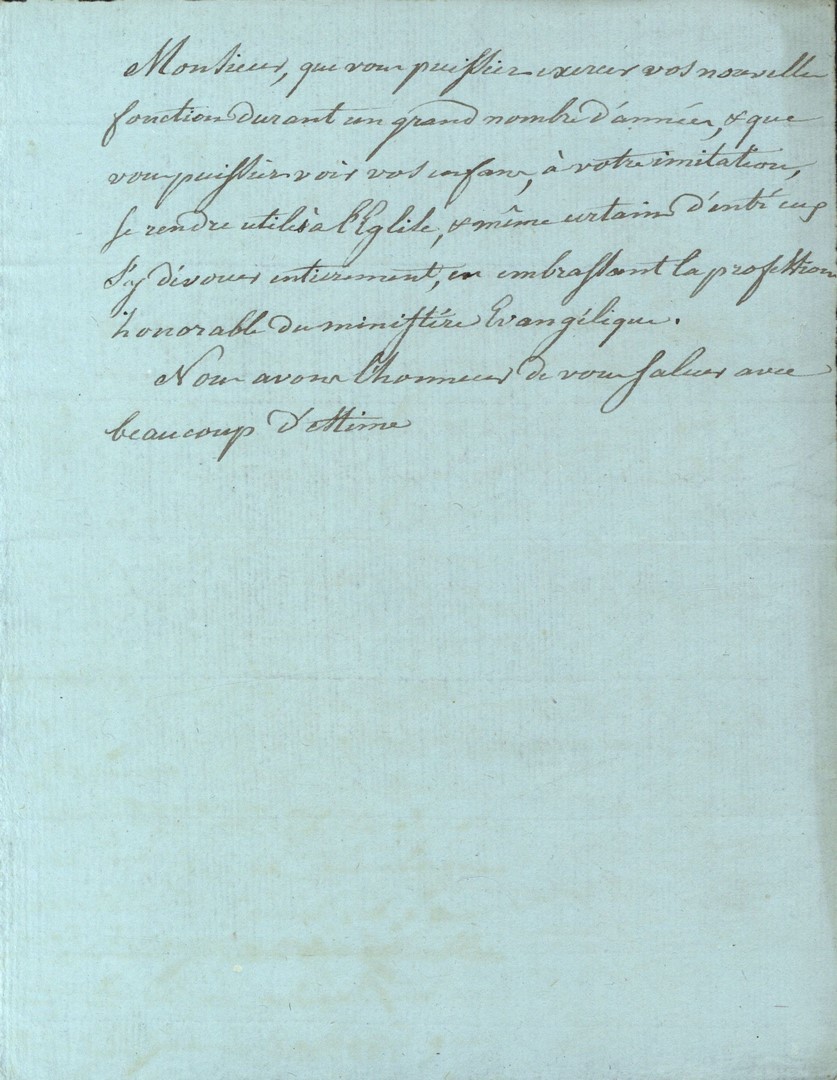 Monsieur, que vous puissiez exercer vos nouvelles
fonctions durant un grand nombre d'années, & que
vous puissiez voir vos enfans, à votre imitation,
se rendre utiles à l'Eglise, & même certains d'entr'eux
s'y dévouer entierement, en embrassant la profession
honorable du ministére Evangélique.
Nous avons l'honneur de vous saluer avec
beaucoup d'estime